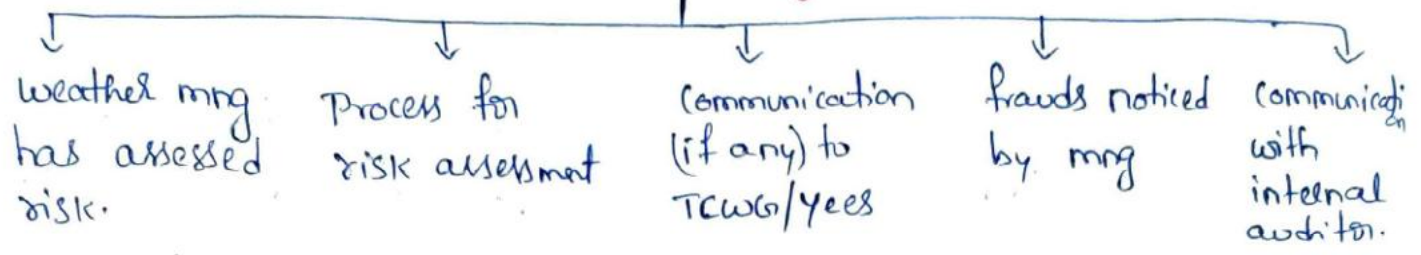 weather mng
has assessed
risk.
Process for
risk assessment
Communication
(if any) to
TCWG/yees
frauds noticed
by mng
Communication
with
internal
auditor.